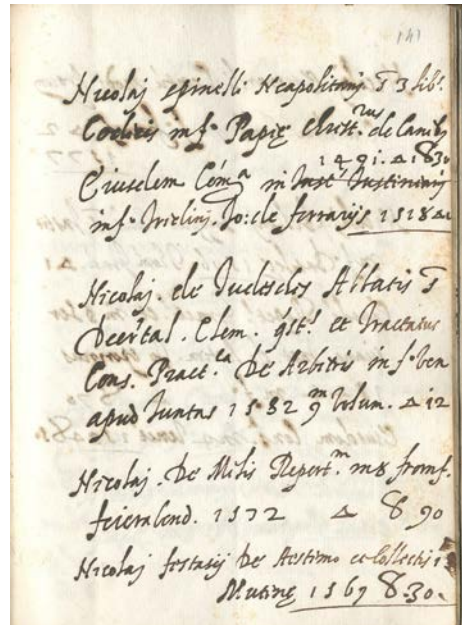 141
Nicolaj spinelli Neapolitanj in 3 lib.
Codicis in f.º Papię Christ.rus de Canibꝫ
1491. Δ 8 30
Eiusdem Com.a in Inst. Justinianj
in f.º Tridinj. Jo: de ferrarijs 1518 Δ
Nicolaj. de Tudeschis Abbatis in
Decretal. Clem. qst. et Tractatus
Cons. Pract.ca De Arbitris in f.º ben
apud Juntas 1582 9 Volum. Δ 12
Nicolaj. De Milis Repert.m in 8 fromf.
feierabend. 1572 Δ 8 90
Nicolaj festasij De Aestimo et Collectis
Mutinę 1569 8.30.